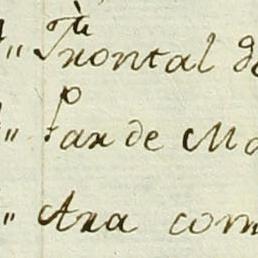 " Frontal de
" Par de Ma
" Ara com